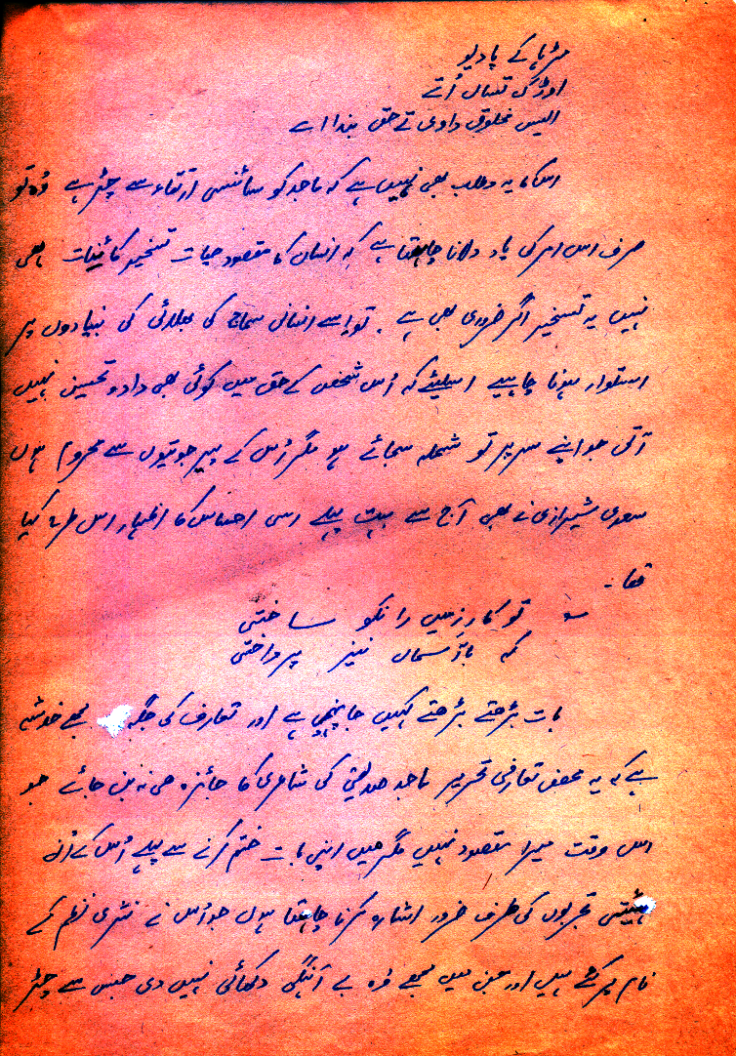 مڑ ما کے پا دیو
اوڑک تساں اُتے
ایس مخلوق داوی تے حق بندا اے
اس کا یہ مطلب بھی نہیں ہے کہ ماجد کو سائنسی ارتقاء سے چڑ ہے وُہ تو
صرف اس امر کی یاد دلانا چاہتا ہے کہ انسان کا مقصودِ حیات تسخیرِ کائینات ہی
نہیں یہ تسخیر اگر ضروری بھی ہے ۔ تو اِسے انسانی سماج کی بھلائی کی بنیادوں پر
استوار ہونا چاہیے اسلیئے کہ اُس شخص کے حق میں کوئی بھی داد و تحسین نہیں
آتی جو اپنے سر پر تو شملہ سجائے ہو مگر اُس کے پیر جوتیوں سے محروم ہوں
سعدی شیرازی نے بھی آج سے بہت پہلے اسی احساس کا اظہار اس طرح کیا
تھا ۔
؎ تو کارِ زمیں را نکو ساختی
کہ با آسماں نیز پرداختی
بات بڑھتے بڑھتے کہیں جا پہنچی ہے اور تعارف کی جگہ مجھے خدشہ
ہے کہ یہ محض تعارفی تحریر ماجد صدیقی کی شاعری کا جائزہ ہی نہ بن جائے جو
اس وقت میرا مقصود نہیں مگر میں اپنی بات ختم کرنے سے پہلے اُس کے اُن
ہیئتی تجربوں کی طرف ضرور اشارہ کرنا چاہتا ہوں جو اُس نے نثری نظم کے
نام پر کئے ہیں اور جن میں مجھے وُہ بے آہنگی دکھائی نہیں دی جس سے چڑ